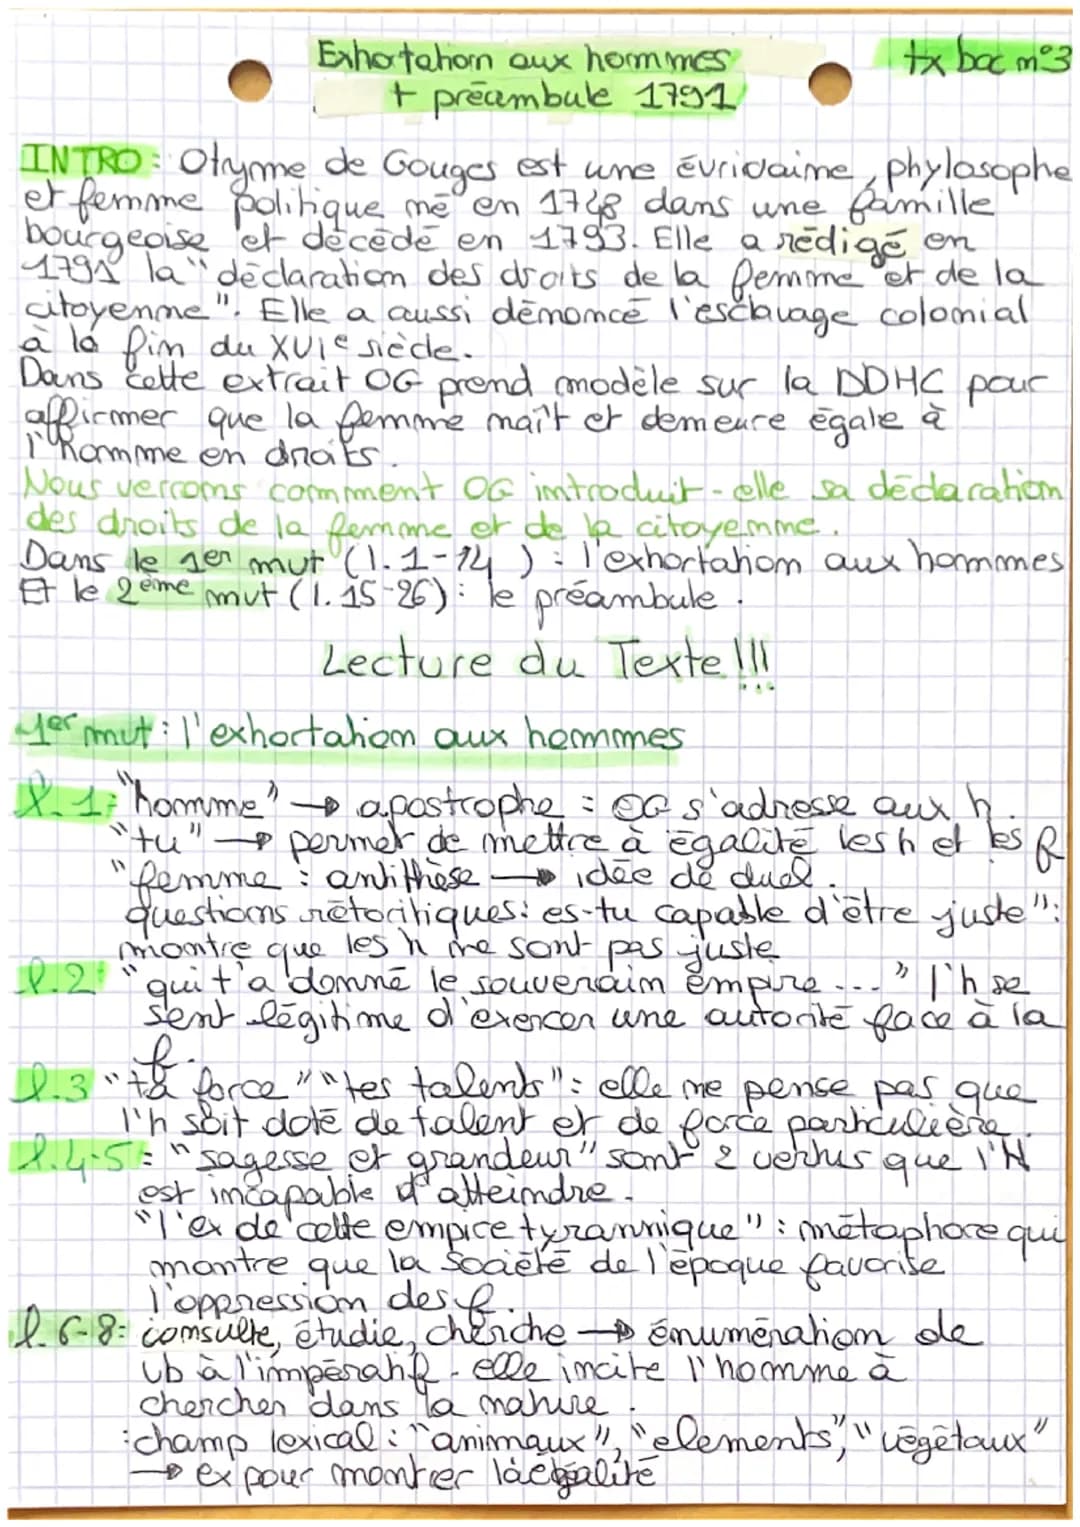 Exhortation aux hommes
+ préambule 1791
tx bac n°3
INTRO: Olymne de Gouges est une évrivaine, phylosophe
et femme politique né en 1748 dans une famille
bourgeoise et décédé en 1793. Elle a rédigé en
1791 la "déclaration des droits de la femme et de la
citoyenne". Elle a aussi dénoncé l'esclavage colonial
à la fin du XVIe siècle.
Dans cette extrait OG prend modèle sur la DDHC pour
affirmer que la femme naît et demeure égale à
l'homme en droits.
Nous verrons comment OG introduit-elle sa déclaration
des droits de la femme et de la citoyenne.
Dans le 1er mvt (l.1-14) : l'exhortation aux hommes
Et le 2ème mvt (l.15-26): le préambule.
Lecture du Texte!!!
1er mvt: l'exhortation aux hommes
l.1: "homme" → apostrophe : OG s'adresse aux h.
"tu" → permet de mettre à égalité les h et les f
"femme : antithèse → idée de duel.
questions rétoritiques: es-tu capable d'être juste":
montre que les h ne sont pas juste
l.2: "qui t'a donné le souverain empire ..." l'h se
sent légitime d'exercer une autorité face à la
f.
l.3 "ta force" "tes talents": elle ne pense pas que
l'h soit doté de talent et de force particulière.
l.4-5: "sagesse et grandeur" sont 2 vertus que l'H
est incapable d'atteindre.
"l'ex de cette empire tyrannique": métaphore qui
montre que la société de l'époque favorise
l'oppression des f.
l.6-8: consulte, étudie, cherche → énumération de
vb à l'impératif. elle incite l'homme à
chercher dans la nature.
:champ lexical: "animaux", "elements", "végétaux"
→ ex pour montrer l'égalité